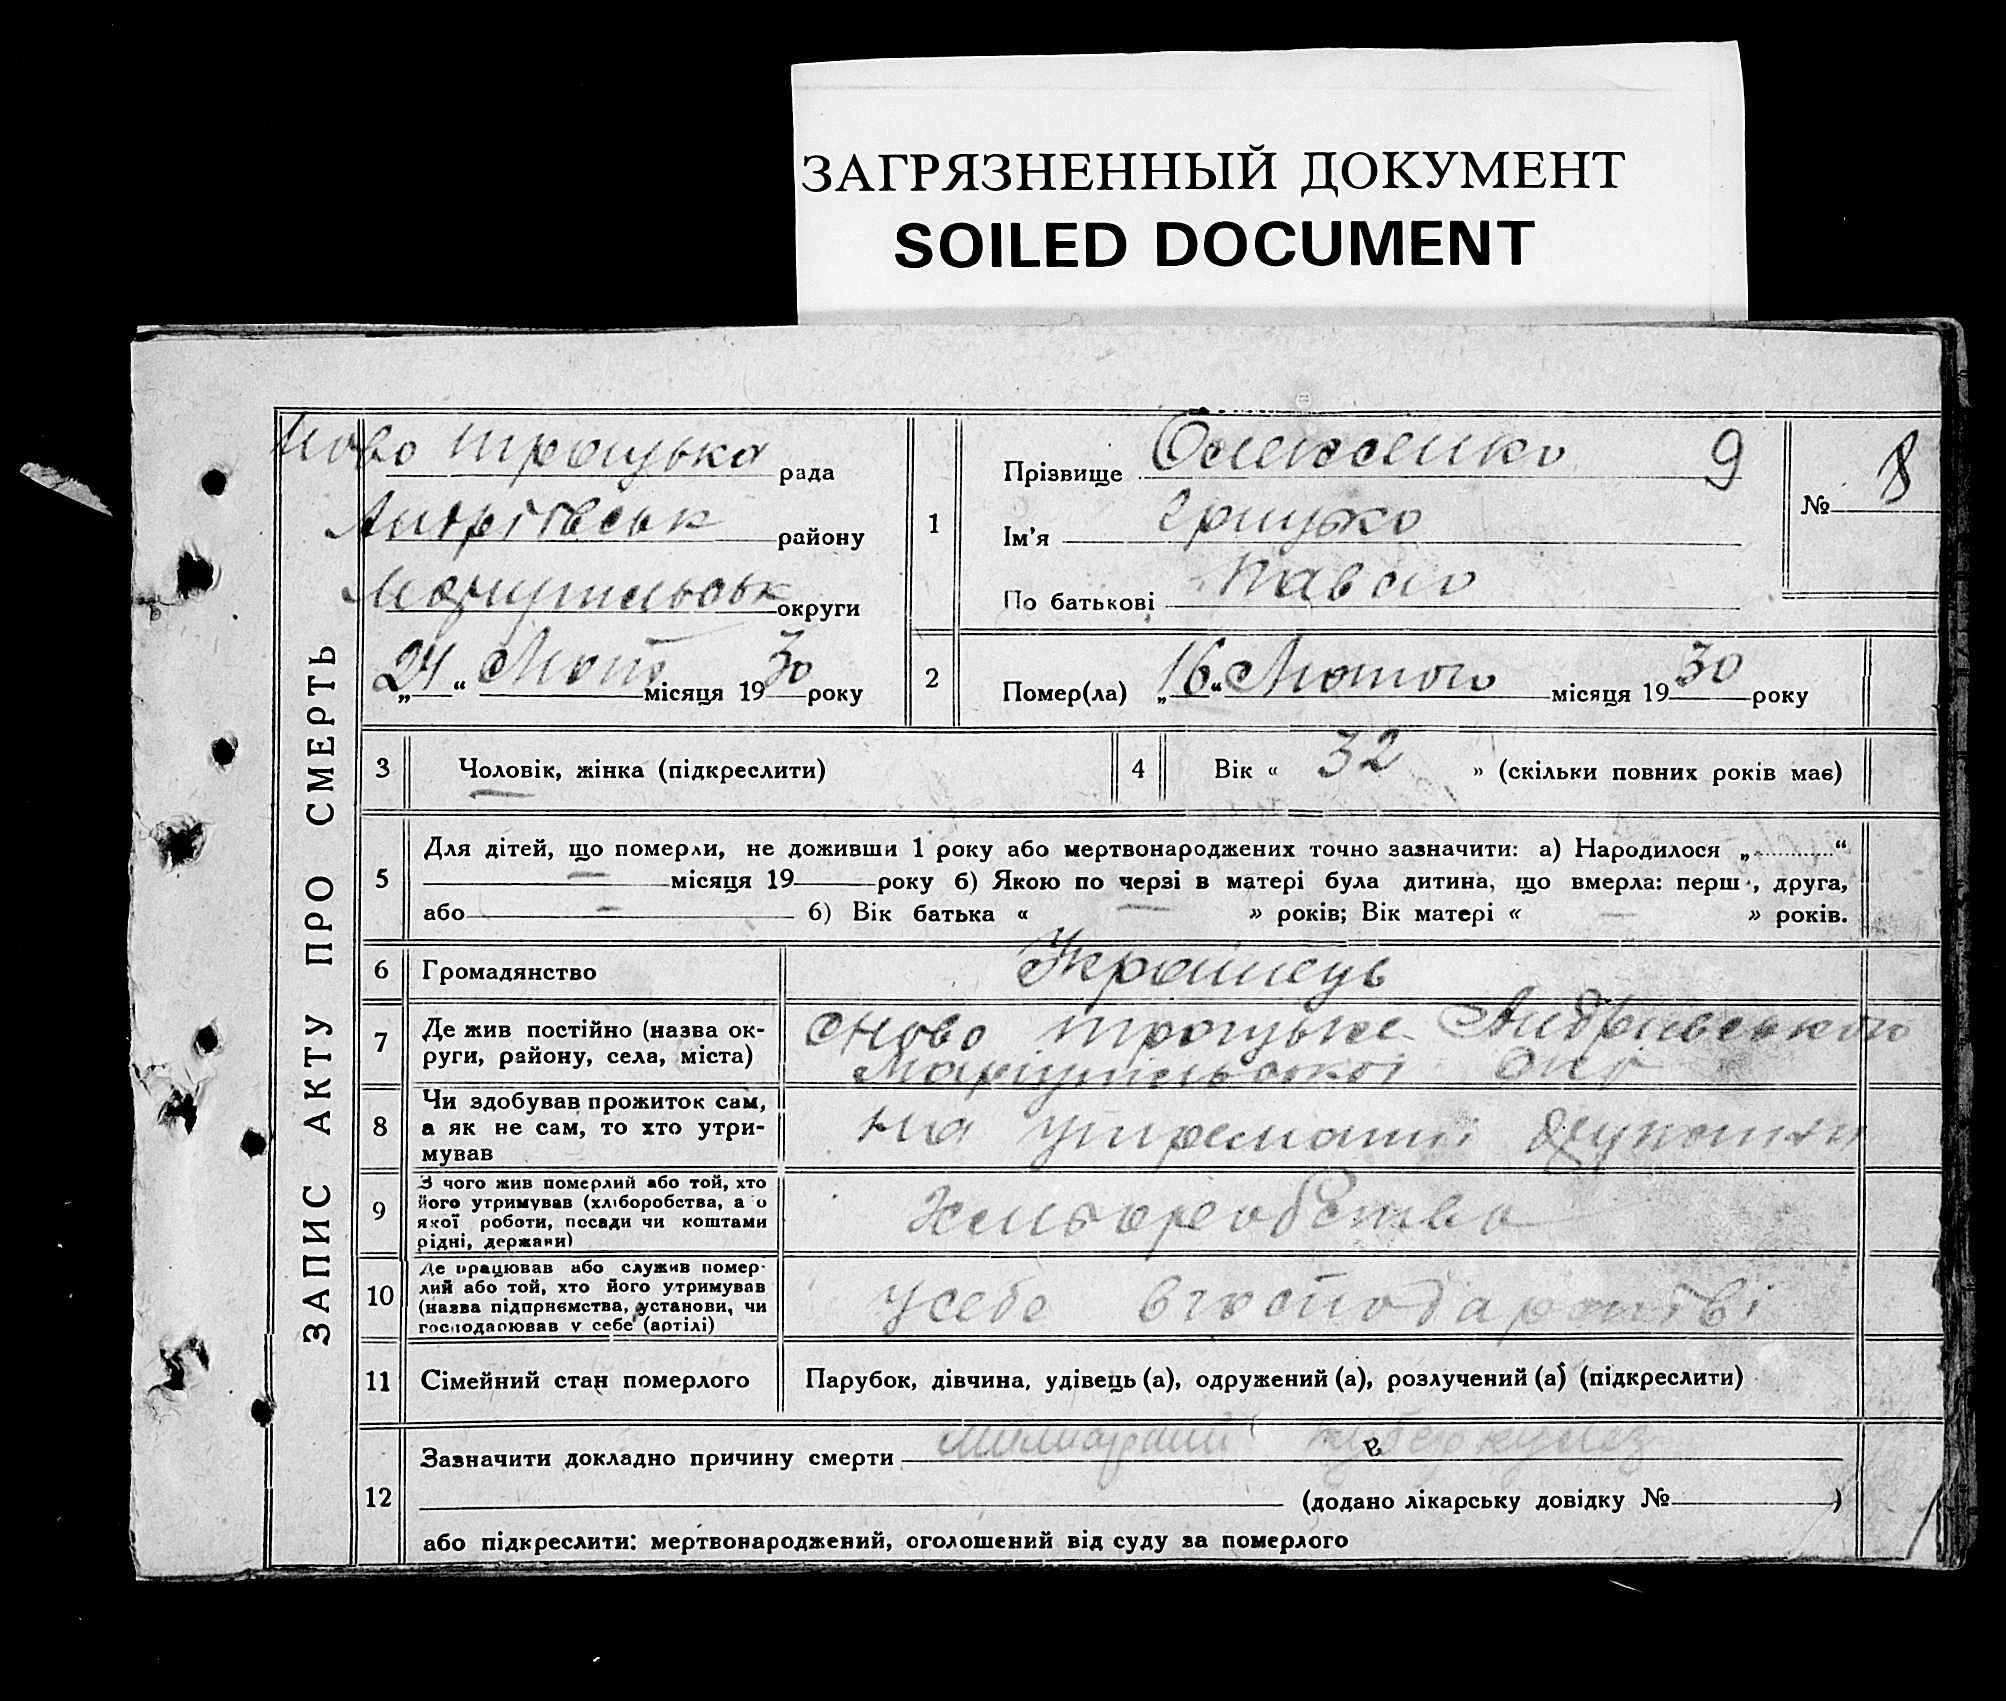 ЗАГРЯЗНЕННЫЙ ДОКУМЕНТ
SOILED DOCUMENT
ЗАПИС АКТУ ПРО СМЕРТЬ
Ново Троцька рада
Андріївськ району
Маріупільськ округи
„24“ Лютого місяця 1930 року
1
Прізвище Олексенко 9
Ім'я Грицько
По батькові Павло
№ 8
2
Помер(ла) „16“ Лютого місяця 1930 року
3 Чоловік, жінка (підкреслити)
4 Вік « 32 » (скільки повних років має)
5 Для дітей, що померли, не доживши 1 року або мертвонароджених точно зазначити: а) Народилося „ “
— місяця 19 року б) Якою по черзі в матері була дитина, що вмерла: перш , друга,
або — б) Вік батька « — » років; Вік матері « — » років.
6 Громадянство Українець
7 Де жив постійно (назва ок-
руги, району, села, міста)
Ново Троцьке Андріївського
Маріупільської Окр
8 Чи здобував прожиток сам,
а як не сам, то хто утри-
мував
на утриманні
9 З чого жив померлий або той, хто
його утримував (хліборобства, а о
якої роботи, посади чи коштами
рідні, держави)
Хліборобство
10 Де працював або служив помер-
лий або той, хто його утримував
(назва підприємства, установи, чи
господарював у себе (артілі)
у себе в господарстві
11 Сімейний стан померлого Парубок, дівчина, удівець (а), одружений (а), розлучений (а) (підкреслити)
12 Зазначити докладно причину смерти туберкульоз
(додано лікарську довідку № )
або підкреслити: мертвонароджений, оголошений від суду за померлого